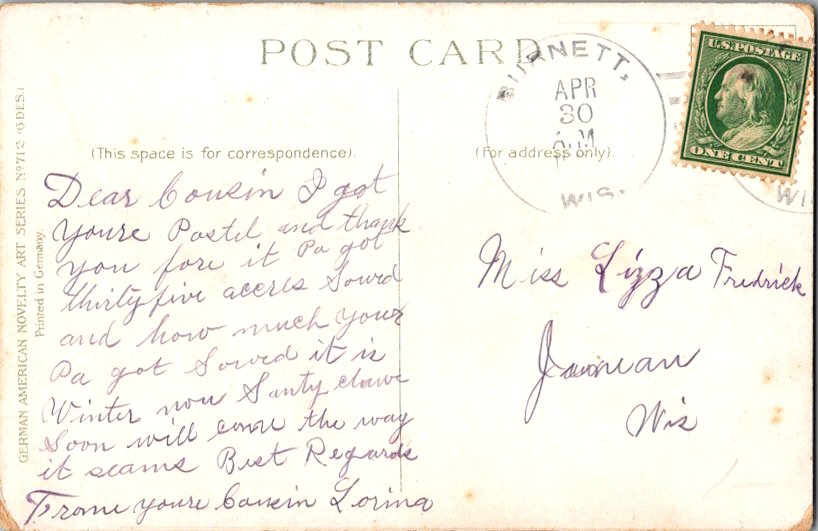 POST CARD
BURNETT,
APR
30
A.M
WIS.
U.S. POSTAGE
ONE CENT
WIS
(This space is for correspondence).
(For address only).
GERMAN AMERICAN NOVELTY ART SERIES Nº 712 (6 DES.)
Printed in Germany.
Dear Cousin I got
youre Postel and thank
you fore it Pa got
thirty five accres Sowed
and how much your
Pa got Sowed it is
Winter now Santy clawe
Soon will come the way
it seams Best Regards
Frome youre Cousin Lorina
Miss Lizza Fredrick
Wis